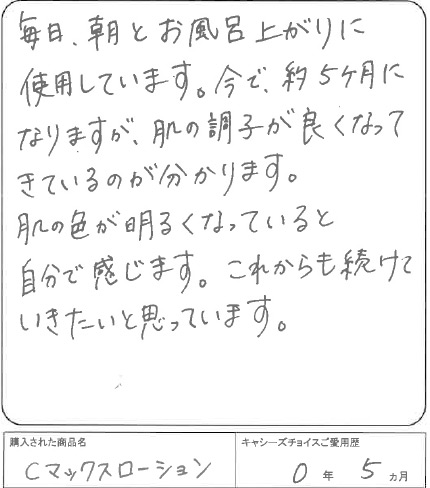 毎日、朝とお風呂上がりに
使用しています。今で、約5ケ月に
なりますが、肌の調子が良くなって
きているのが分かります。
肌の色が明るくなっていると
自分で感じます。これからも続けて
いきたいと思っています。
購入された商品名
Cマックスローション
キャシーズチョイスご愛用歴
0 年 5 ヵ月